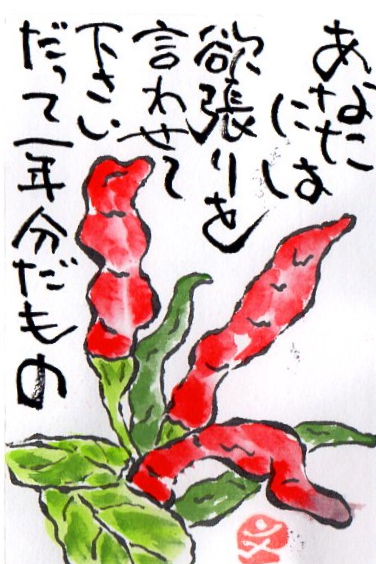 あなた
には
欲張りを
言わせて
下さい
だって一年分だもの